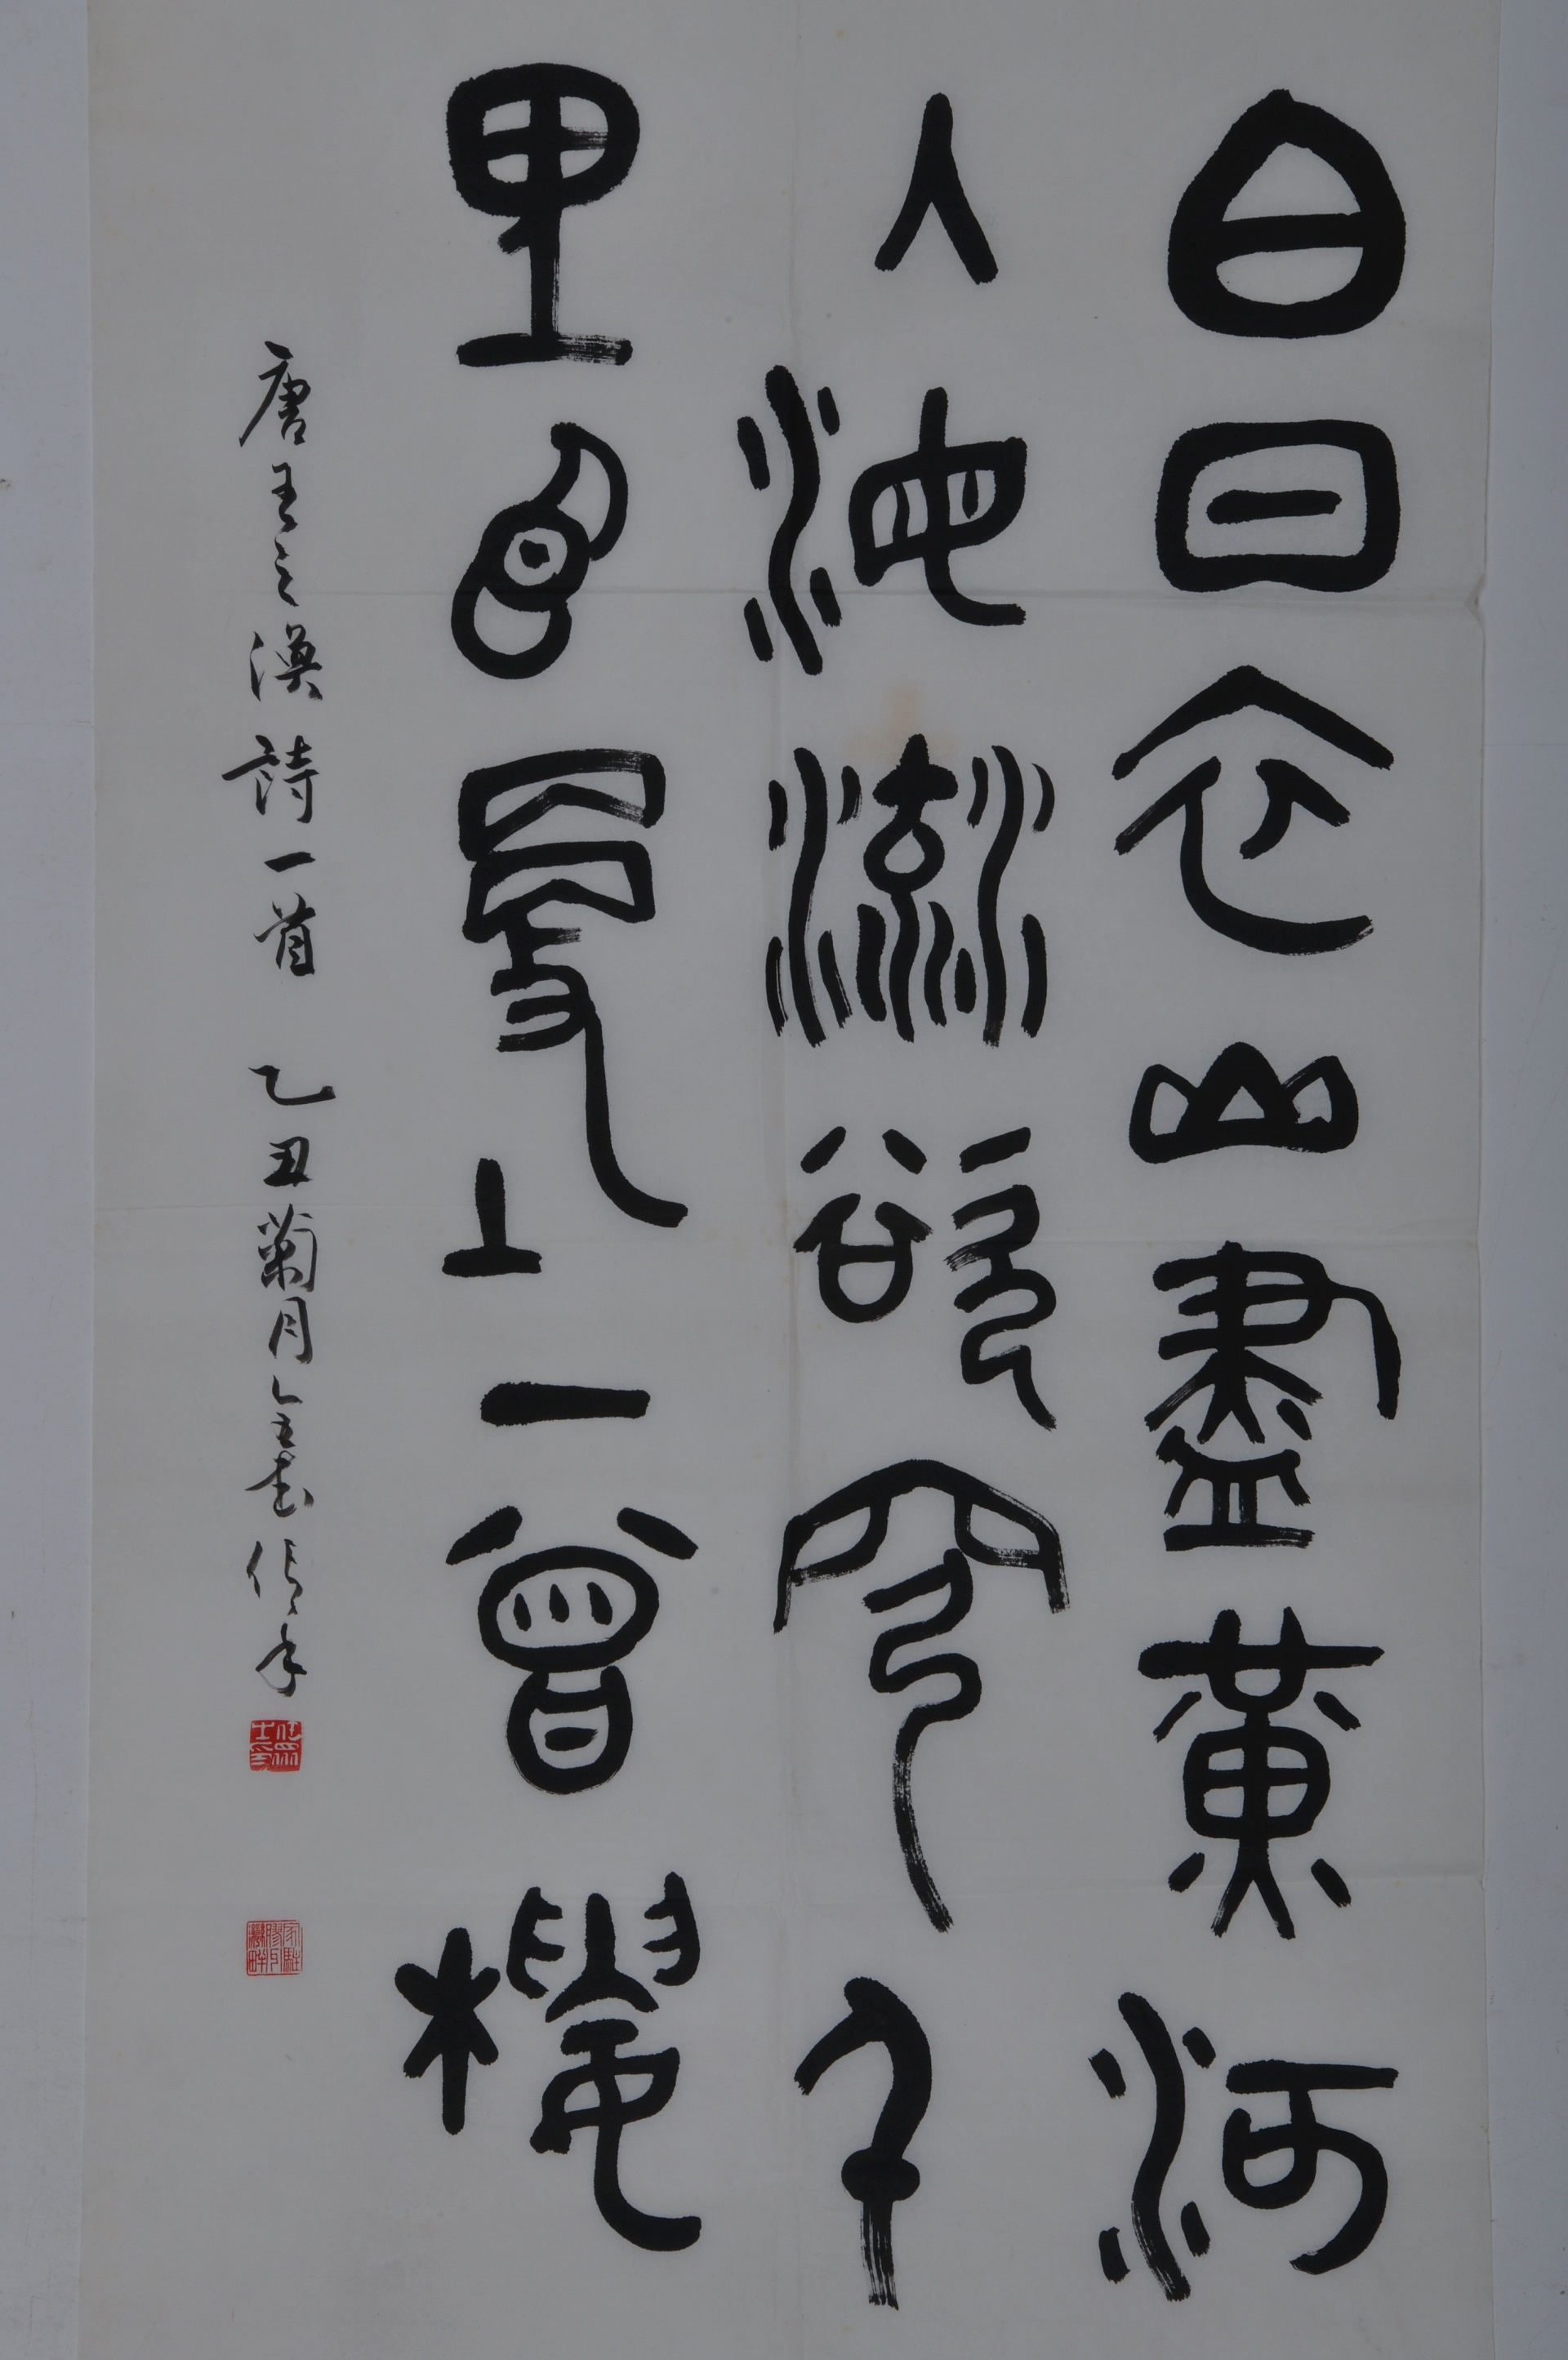 白日衣山盡黃河
入海流欲窮千
里目更上一曾樓
唐王之渙詩一首 乙丑菊月